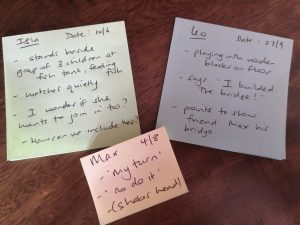 Isla Date: 10/6
- stands beside
group of 3 children at
fish tank, feeding
fish
- watches quietly
- I wonder if she
wants to join in too?
- How can we include her?
Leo Date: 27/9
- playing with wooden
blocks on floor
- says 'I builded
the bridge!'
- points to show
friend Max his
bridge
Max 4/8
- 'My turn'
- 'no do it'
- (shakes head)